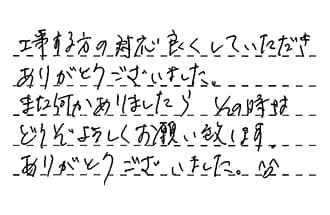 工事する方の対応良くしていただき
ありがとうございました。
また何かありましたら その時は
どうぞよろしくお願い致します。
ありがとうございました。^^